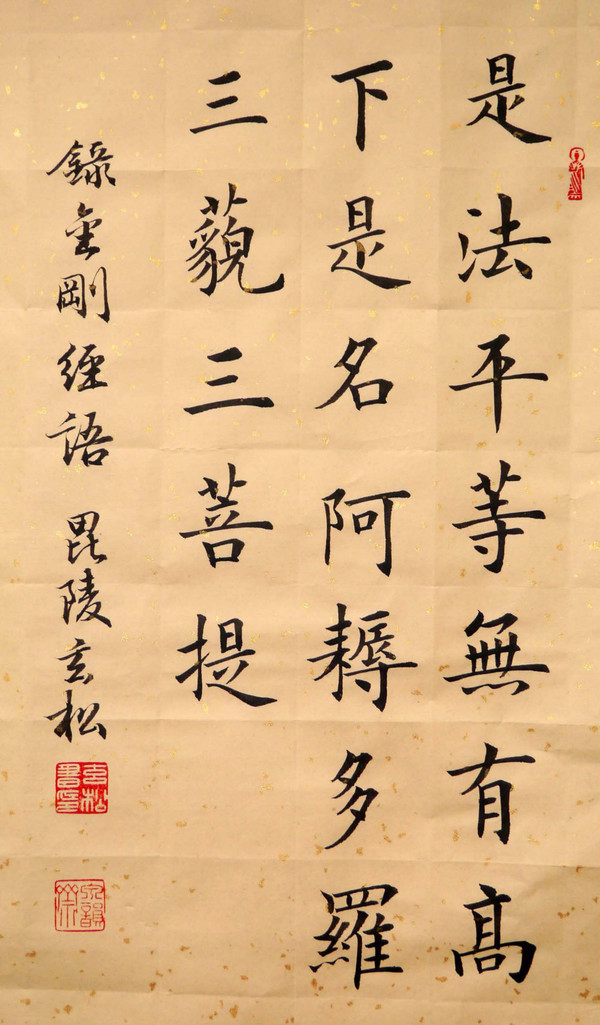 是法平等無有高
下是名阿耨多羅
三藐三菩提
錄金剛經語 毘陵玄松